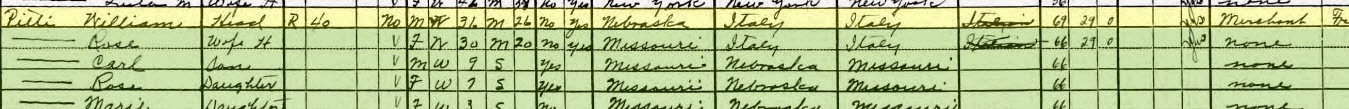 Wife H V F W M No Yes New York New York New York 56 none
Pitti William Head R 40 No M W 36 M 26 No Yes Nebraska Italy Italy Italian 69 29 0 Merchant
Rose Wife H V F W 30 M 20 No Yes Missouri Italy Italy Italian 66 29 0 none
Carl Son V M W 9 S Yes Missouri Nebraska Missouri 66 none
Rose Daughter V F W 7 S Yes Missouri Nebraska Missouri 66 none
Marie Daughter V F W 3 S No Missouri Nebraska Missouri 66 none